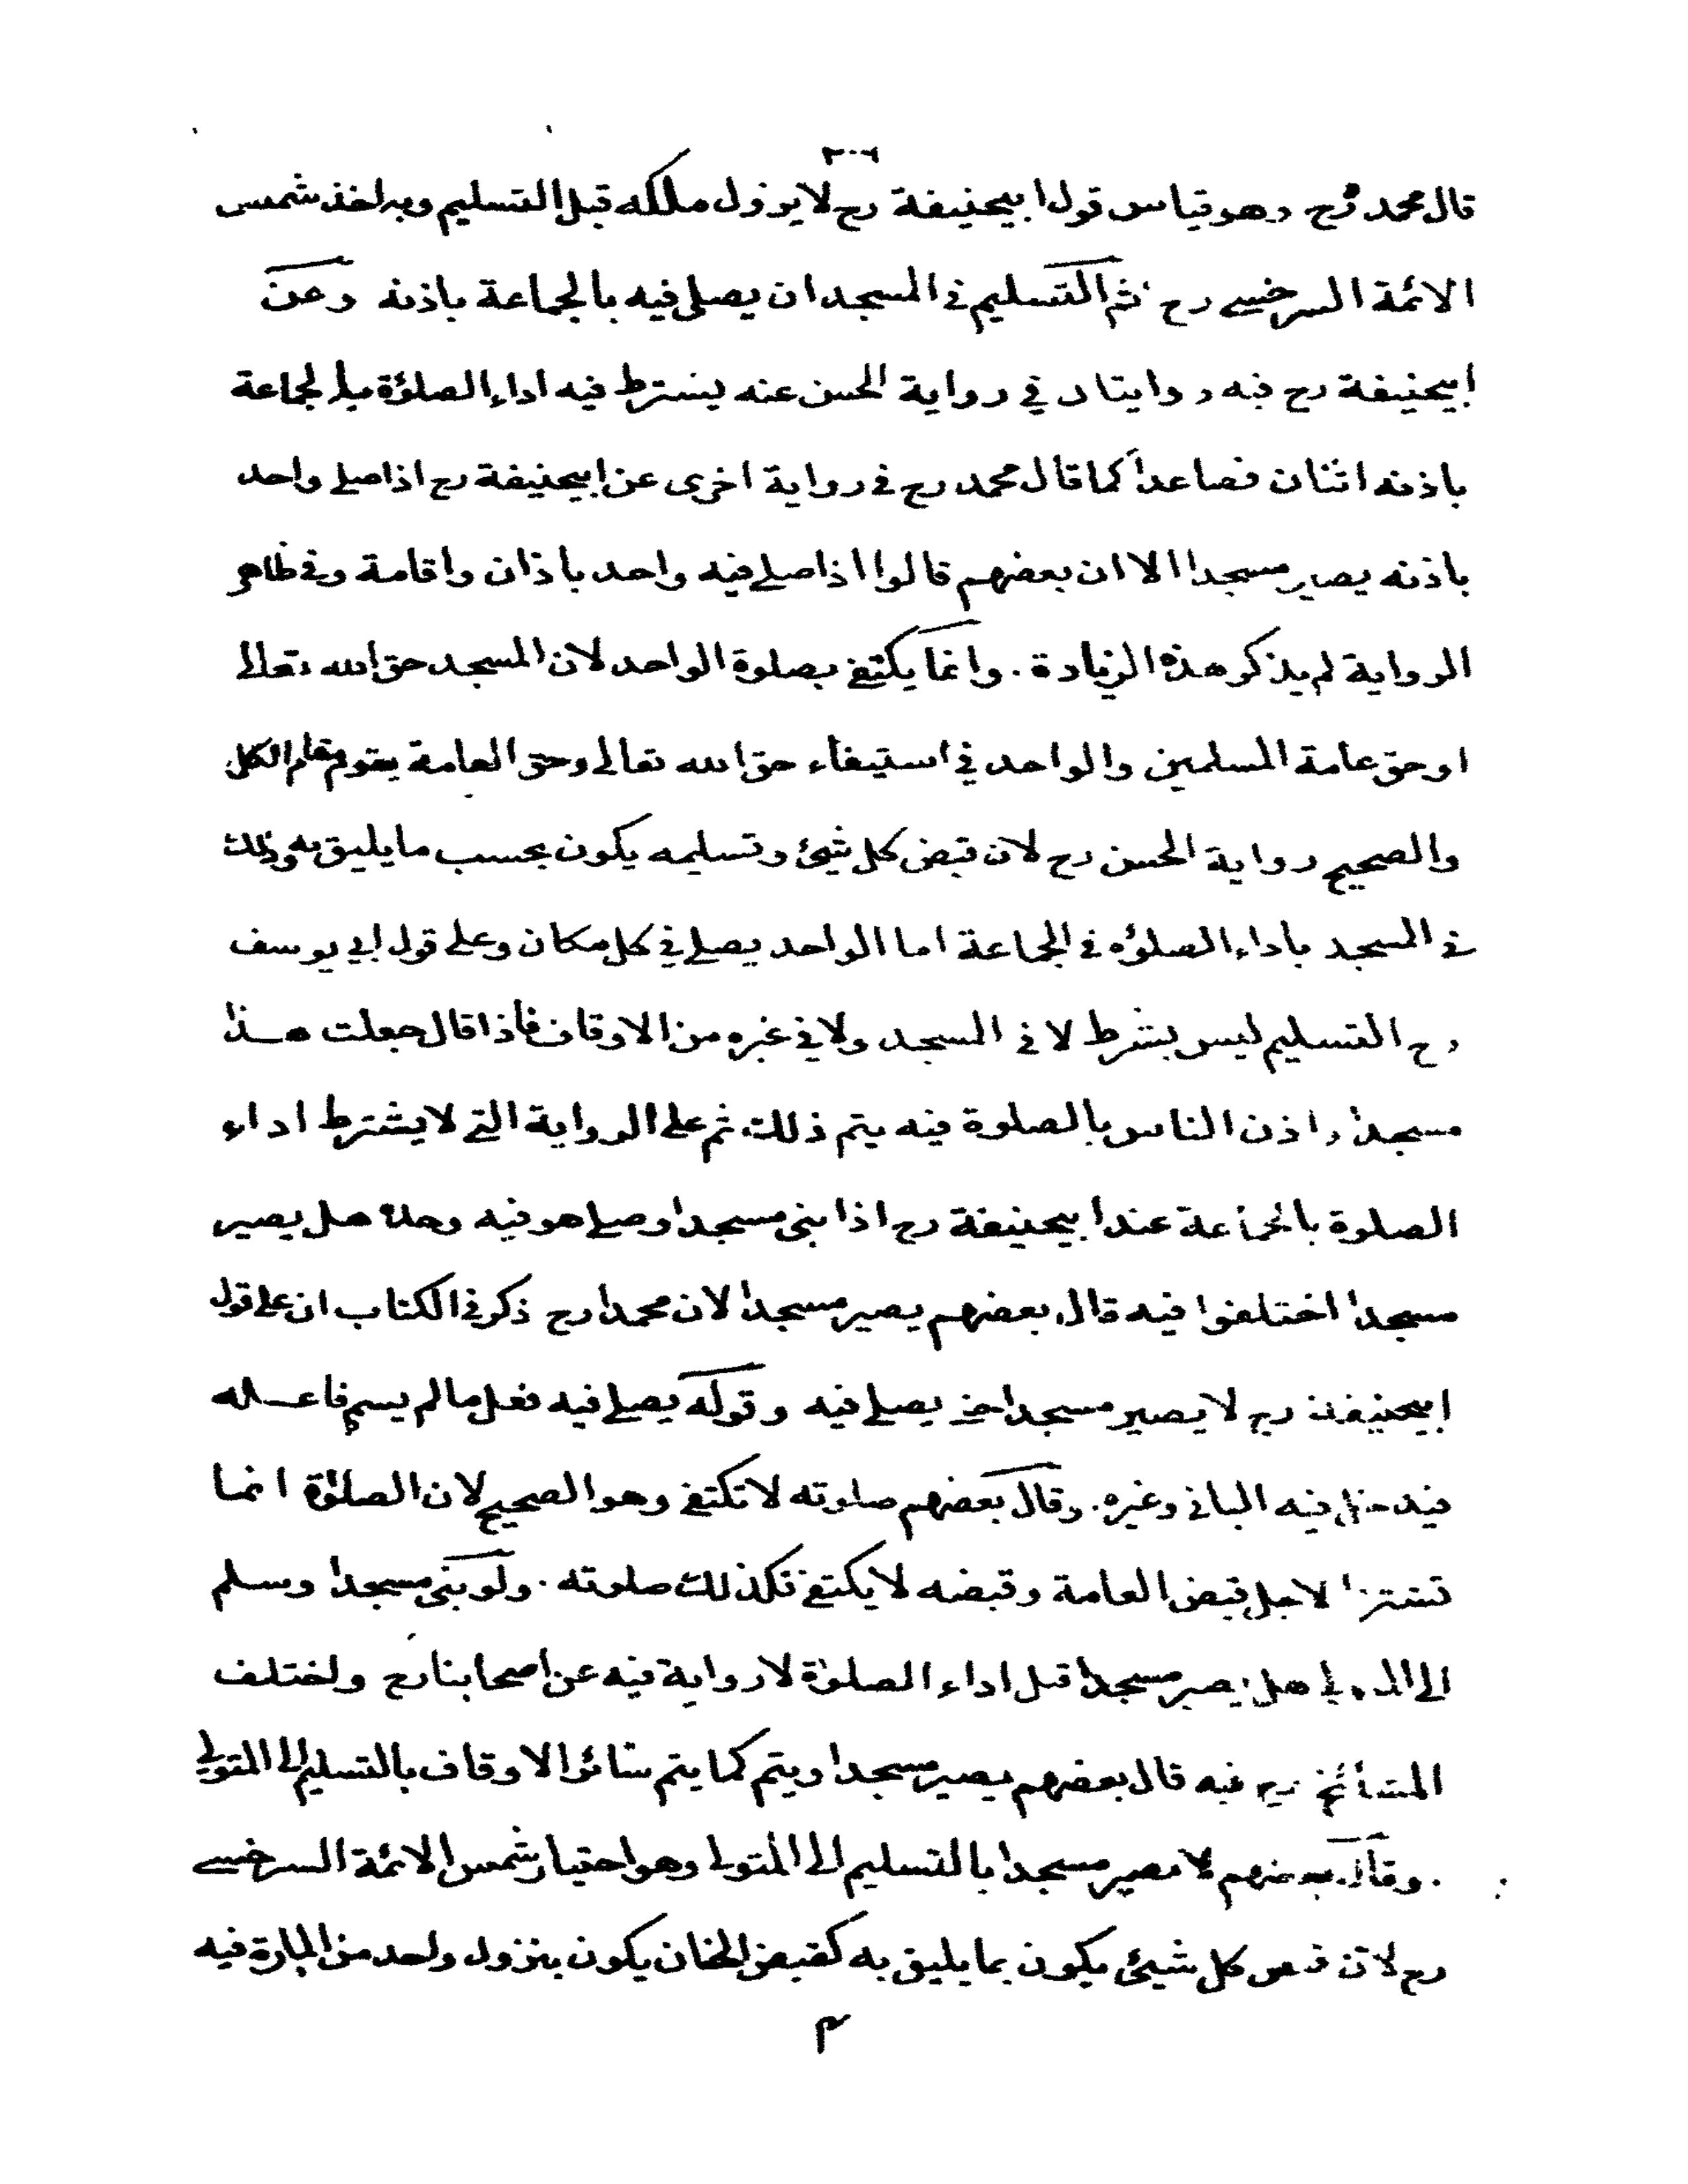 قال محمد رح وهو قياس قول ابيحنيفة رح لا يزول ملكه قبل التسليم وبه اخذ شمس
الائمة السرخسي رح ثم التسليم في المسجد ان يصلى فيه بالجماعة باذنه وعن
ابيحنيفة رح فيه روايتان في رواية الحسن عنه يشترط فيه اداء الصلوة بالجماعة
باذنه اثنان فصاعداً كما قال محمد رح في رواية اخرى عن ابيحنيفة رح اذا صلى واحد
باذنه يصير مسجدا الا ان بعضهم قالوا اذا صلى فيه واحد باذان واقامة وفي ظاهر
الرواية لم يذكر هذه الزيادة . وانما يكتفى بصلوة الواحد لان المسجد حق الله تعالى
او حق عامة المسلمين والواحد في استيفاء حق الله تعالى وحق العامة يقوم مقام الكل
والصحيح رواية الحسن رح لان قبض كل شيئ وتسليمه يكون بحسب ما يليق به وذلك
في المسجد باداء الصلوة في الجماعة اما الواحد يصلى في كل مكان وعلى قول ابي يوسف
رح التسليم ليس بشرط لا في المسجد ولا في غيره من الاوقاف فاذا قال جعلت هذا
مسجدا واذن الناس بالصلوة فيه يتم ذلك ثم على الرواية التي لا يشترط اداء
الصلوة بالجماعة عند ابيحنيفة رح اذا بنى مسجدا وصلى هو فيه وحده هل يصير
مسجدا اختلفوا فيه قال بعضهم يصير مسجدا لان محمدا رح ذكر في الكتاب ان على قول
ابيحنيفة رح لا يصير مسجدا حتى يصلى فيه وقوله يصلى فيه فعل ما لم يسم فاعله
فيدخل فيه الباني وغيره . وقال بعضهم صلوته لا تكتفى وهو الصحيح لان الصلوة انما
تشترط لاجل قبض العامة وقبضه لا يكتفى فكذلك صلوته . ولو بنى مسجدا وسلم
الى المتولي هل يصير مسجدا قبل اداء الصلوة لا رواية فيه عن اصحابنا رح واختلف
المشائخ رح فيه قال بعضهم يصير مسجدا ويتم كما يتم سائر الاوقاف بالتسليم الى المتولي
. وقال بعضهم لا يصير مسجدا بالتسليم الى المتولي وهو اختيار شمس الائمة السرخسي
رح لان قبض كل شيئ يكون بما يليق به كقبض الخان يكون بنزول واحد من المارة فيه